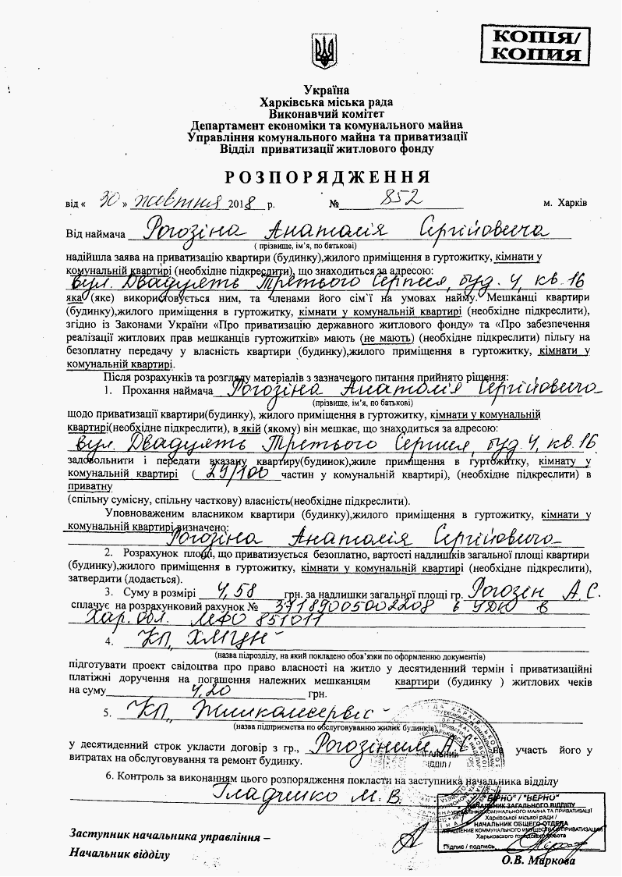 КОПІЯ/
КОПИЯ
Україна
Харківська міська рада
Виконавчий комітет
Департамент економіки та комунального майна
Управління комунального майна та приватизації
Відділ приватизації житлового фонду
РОЗПОРЯДЖЕННЯ
від « 30 » жовтня 2018 р. № 852 м. Харків
Від наймача Рогозіна Анатолія Сергійовича
( прізвище, ім'я, по батькові)
надійшла заява на приватизацію квартири (будинку),жилого приміщення в гуртожитку, кімнати у
комунальній квартирі (необхідне підкреслити), що знаходиться за адресою:
вул. Двадцять Третього Серпня, буд. 4, кв. 16
яка (яке) використовується ним, та членами його сім'ї на умовах найму. Мешканці квартири
(будинку),жилого приміщення в гуртожитку, кімнати у комунальній квартирі (необхідне підкреслити),
згідно із Законами України «Про приватизацію державного житлового фонду» та «Про забезпечення
реалізації житлових прав мешканців гуртожитків» мають (не мають) (необхідне підкреслити) пільгу на
безоплатну передачу у власність квартири (будинку),жилого приміщення в гуртожитку, кімнати у
комунальній квартирі.
Після розрахунків та розгляду матеріалів з зазначеного питання прийнято рішення:
1. Прохання наймача Рогозіна Анатолія Сергійовича
(прізвище, ім'я, по батькові)
щодо приватизації квартири(будинку), жилого приміщення в гуртожитку, кімнати у комунальній
квартирі(необхідне підкреслити), в якій (якому) він мешкає, що знаходиться за адресою:
вул. Двадцять Третього Серпня, буд. 4, кв. 16
задовольнити і передати вказану квартиру(будинок),жиле приміщення в гуртожитку, кімнату у
комунальній квартирі ( 29/100 частин у комунальній квартирі), (необхідне підкреслити) в
приватну
(спільну сумісну, спільну часткову) власність(необхідне підкреслити).
Уповноваженим власником квартири (будинку),жилого приміщення в гуртожитку, кімнати у
комунальній квартирі визначено:
Рогозіна Анатолія Сергійовича
2. Розрахунок площі, що приватизується безоплатно, вартості надлишків загальної площі квартири
(будинку),жилого приміщення в гуртожитку, кімнати у комунальній квартирі (необхідне підкреслити),
затвердити (додається).
3. Суму в розмірі 4,58 грн. за надлишки загальної площі гр. Рогозін А.С.
сплачує на розрахунковий рахунок № 37189005002208 в УДКУ в
Хар. обл. МФО 851011
4. КП
(назва підрозділу, на який покладено обов'язки по оформленню документів)
підготувати проект свідоцтва про право власності на житло у десятиденний термін і приватизаційні
платіжні доручення на погашення належних мешканцям квартири (будинку ) житлових чеків
на суму 4,20 грн.
5. КП „Жилкомсервіс"
(назва підприємства по обслуговуванню жилих будинків
у десятиденний строк укласти договір з гр., Рогозіним А.С. на участь його у
витратах на обслуговування та ремонт будинку.
6. Контроль за виконанням цього розпорядження покласти на заступника начальника відділу
Гладченко М. В.
"ВІРНО" / "ВЕРНО"
НАЧАЛЬНИК ЗАГАЛЬНОГО ВІДДІЛУ
Харківської міської ради /
НАЧАЛЬНИК ОБЩЕГО ОТДЕЛА
Підпис / подпись
Заступник начальника управління –
Начальник відділу
О.В. Маркова